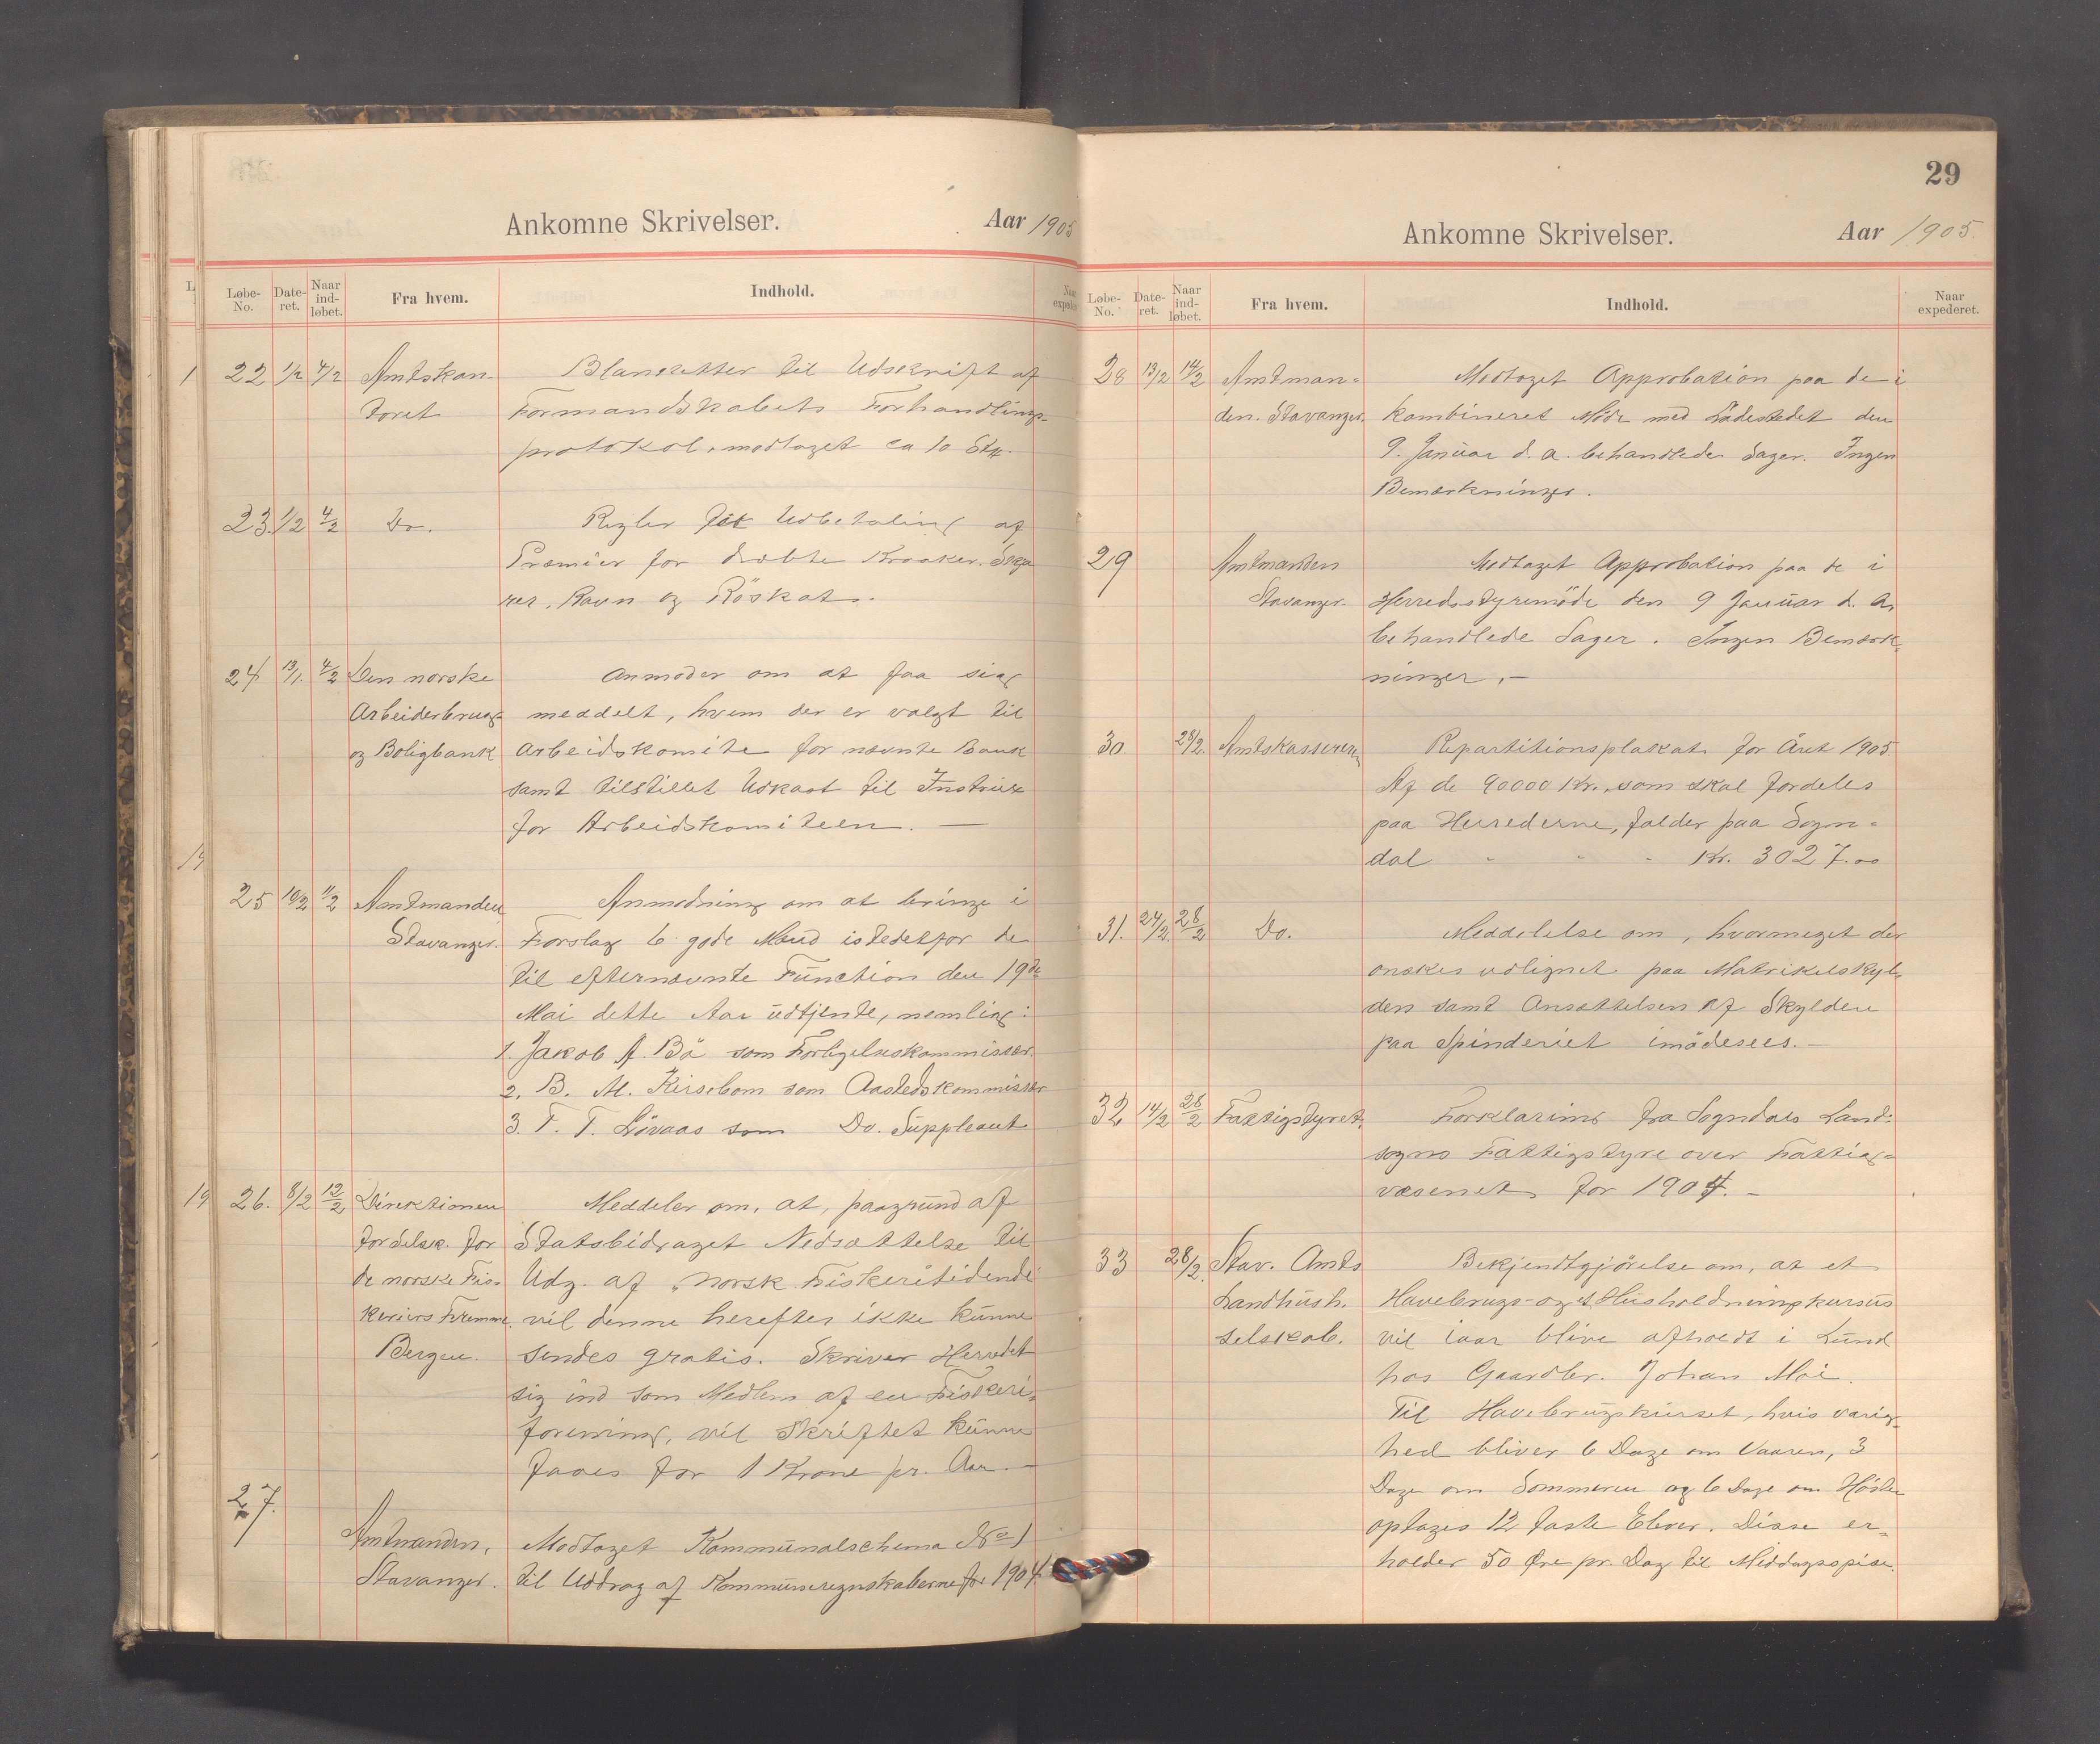 Ankomne Skrivelser. Aar 1905
Løbe-No. Date-ret. Naar ind-løbet. Fra hvem. Indhold.
22 1/2 4/2 Amtskan- Blanketter til Udskrift af
toret Formandskabets Forhandlings-
protokol, modtaget ca 10 Stk.
23. 1/2 4/2 Do. Regler for Udbetaling af
Præmier for dræbte Kraaker, Skjæ
rer, Ravn og Röskat.
24 13/1. 4/2 Den norske Anmoder om at faa sig
Arbeiderbrugs meddelt, hvem der er valgt til
og Boligbank Arbeidskomite for nævnte Bank
samt tilstillet Udkast til Instrux
for Arbeidskomiteen. —
25 10/2 11/2 Amtmanden Anmodning om at bringe i
Stavanger. Forslag 6 gode Mænd istedetfor de
til efternævnte Function den 19de
Mai dette Aar udtjente, nemlig:
1. Jakob A. Bö som Forligelseskommissær.
2. B. M. Kirsebom som Aastedskommissær
3. T. T. Lövaas som Do. Suppleant
26. 8/2 12/2 Direktionen Meddeler om, at, paagrund af
for Selsk. for Statsbidraget Nedsættelse til
de norske Fis- Udg. af "Norsk Fiskeritidende
keriers Fremme. vil denne herefter ikke kunne
Bergen. sendes gratis. Skriver Herredet
sig ind som Medlem af en Fiskeri-
forening, vil Skriftet kunne
faaes for 1 Krone pr. Aar. —
27.
Amtmanden, Modtaget Kommunalschema No 1
Stavanger. til Uddrag af Kommuneregnskaberne for 1904
29
Ankomne Skrivelser. Aar 1905.
Løbe-No. Date-ret. Naar ind-løbet. Fra hvem. Indhold. Naar expederet.
28 13/2 14/2 Amtman- Modtaget Approbation paa de i
den. Stavanger. kombineret Möde med Ladestedet den
9. Januar d. a. behandlede Sager. Ingen
Bemærkninger.
29 Amtmanden Modtaget Approbation paa de i
Stavanger. Herredsstyremöde den 9 Januar d. A.
behandlede Sager. Ingen Bemærk-
ninger. —
30 28/2. Amtskasseren Repartitionsplakat for Året 1905.
Af de 90000 Kr., som skal fordeles
paa Herrederne, falder paa Sogn-
dal - - - Kr. 3027.00
31. 24/2. 28/2 Do. Meddelelse om, hvormeget der
onskes udlignet paa Matrikelskyl-
den samt Ansættelsen af Skylden
paa Spinderiet imödesees. —
32 14/2 28/2 Fattigstyret. Forklaring fra Sogndals Land-
sogns Fattigstyre over Fattig-
væsenet for 1904. —
33 28/2. Stav. Amts Bekjendtgjörelse om, at et
Landhush. Havebrugs- og et Husholdningskursus
selskab. vil iaar blive afholdt i Lund
hos Gaardbr. Johan Moi.
Til Havebrugskurset, hvis varig-
hed bliver 6 Dage om Vaaren, 3
Dage om Sommeren og 6 Dage om Hösten
optages 12 faste Elever. Disse er-
holder 50 Øre pr. Dag til Middagsspise.